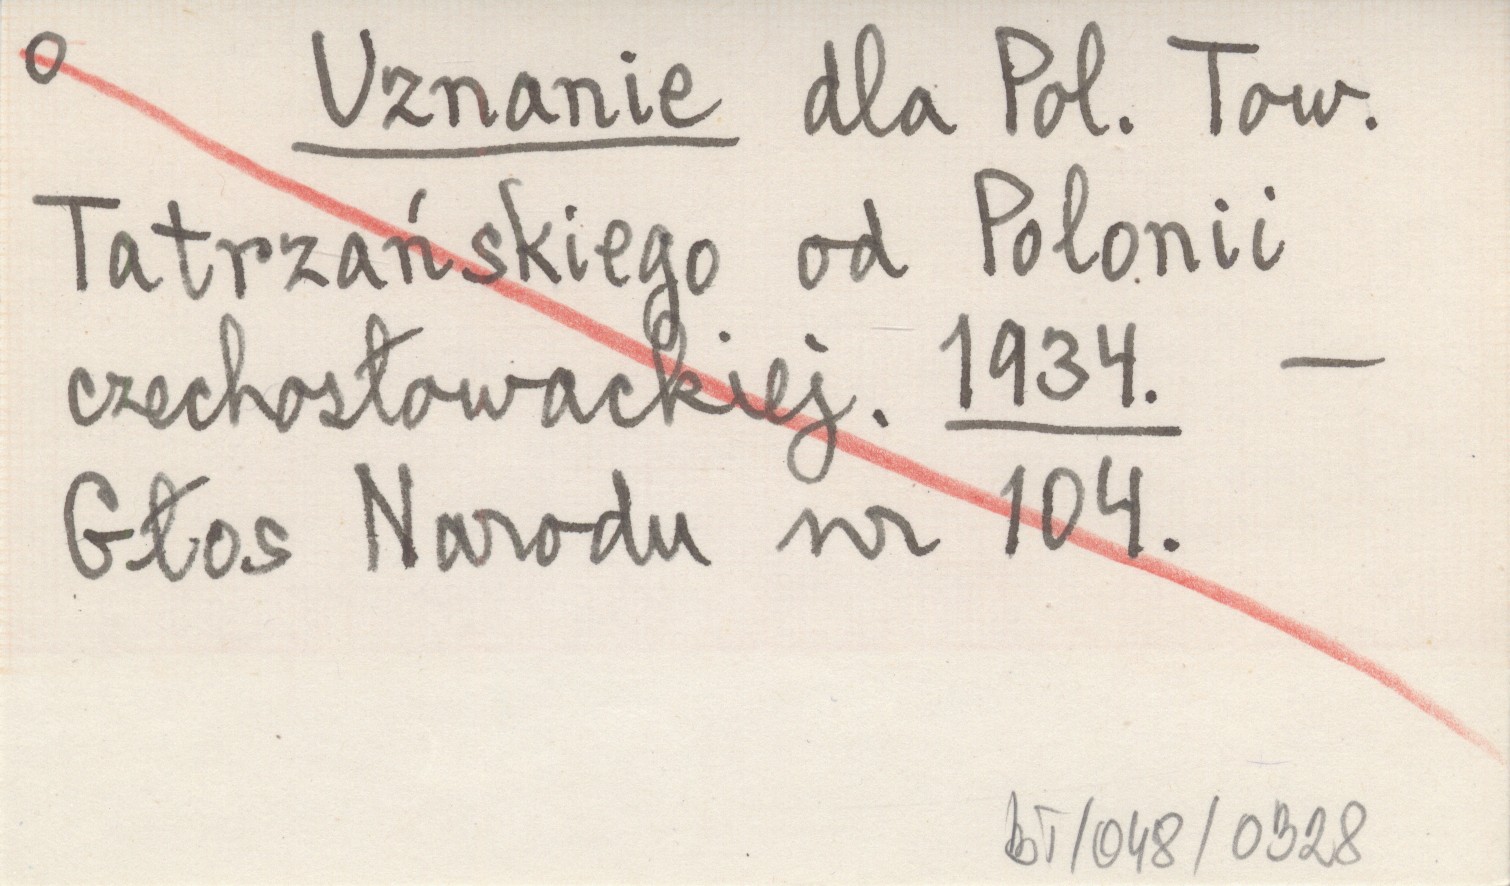 o Uznanie dla Pol. Tow.
Tatrzańskiego od Polonii
czechosłowackiej. 1934. —
Głos Narodu nr 104.
bT/048/0328